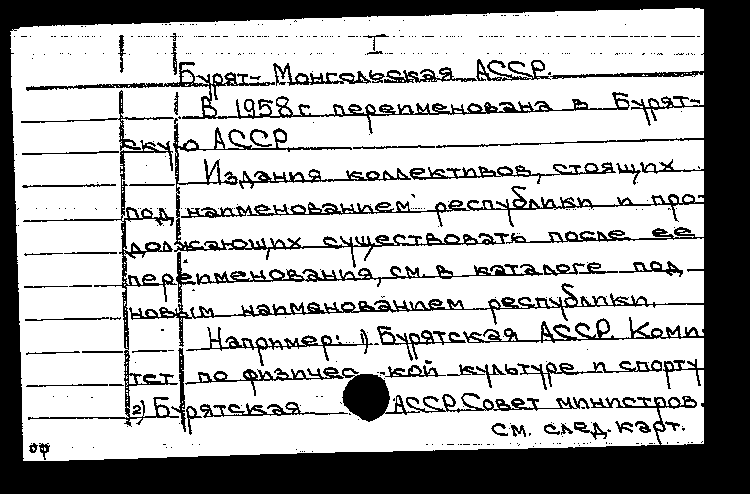 I
Бурят-Монгольская АССР.
В 1958 г переименована в Бурят-
скую АССР
Издания коллективов, стоящих
под наименованием республики и про-
должающих существовать после ее
переименования, см. в каталоге под
новым наименованием республики.
Например: 1) Бурятская АССР. Коми-
тет по физической культуре и спорту
2) Бурятская АССР. Совет министров.
см. след. карт.